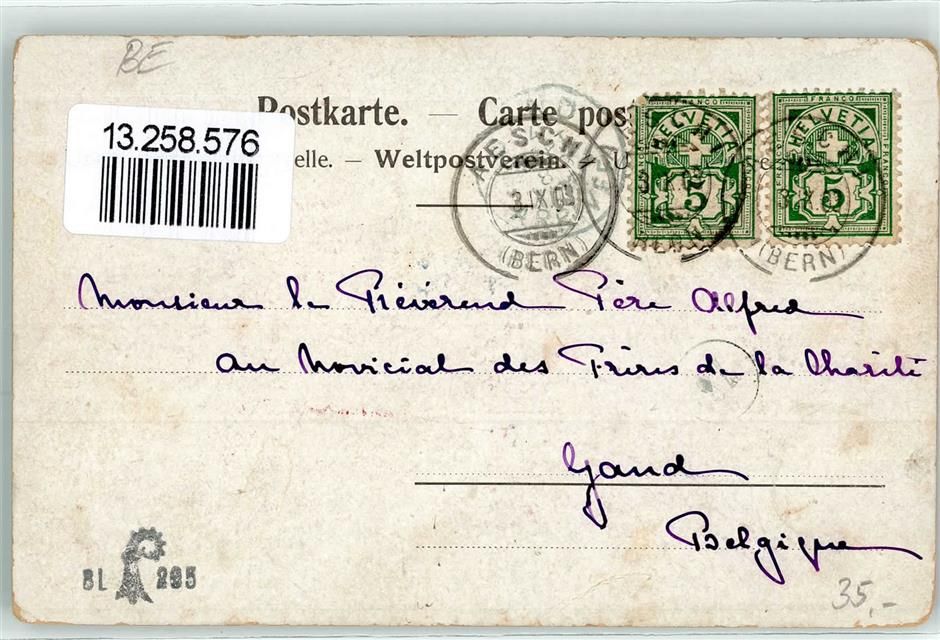 BE
Postkarte. — Carte pos
13.258.576
elle. — Weltpostverein. — U
AESCHI
3.IX.
(BERN)
FRANCO
HELVETIA
5
FRANCO
HELVETIA
5
(BERN)
Monsieur le Révérend Père Alfred
au Noviciat des Frères de la Charité
Gand
Belgique
BL 295
35,-